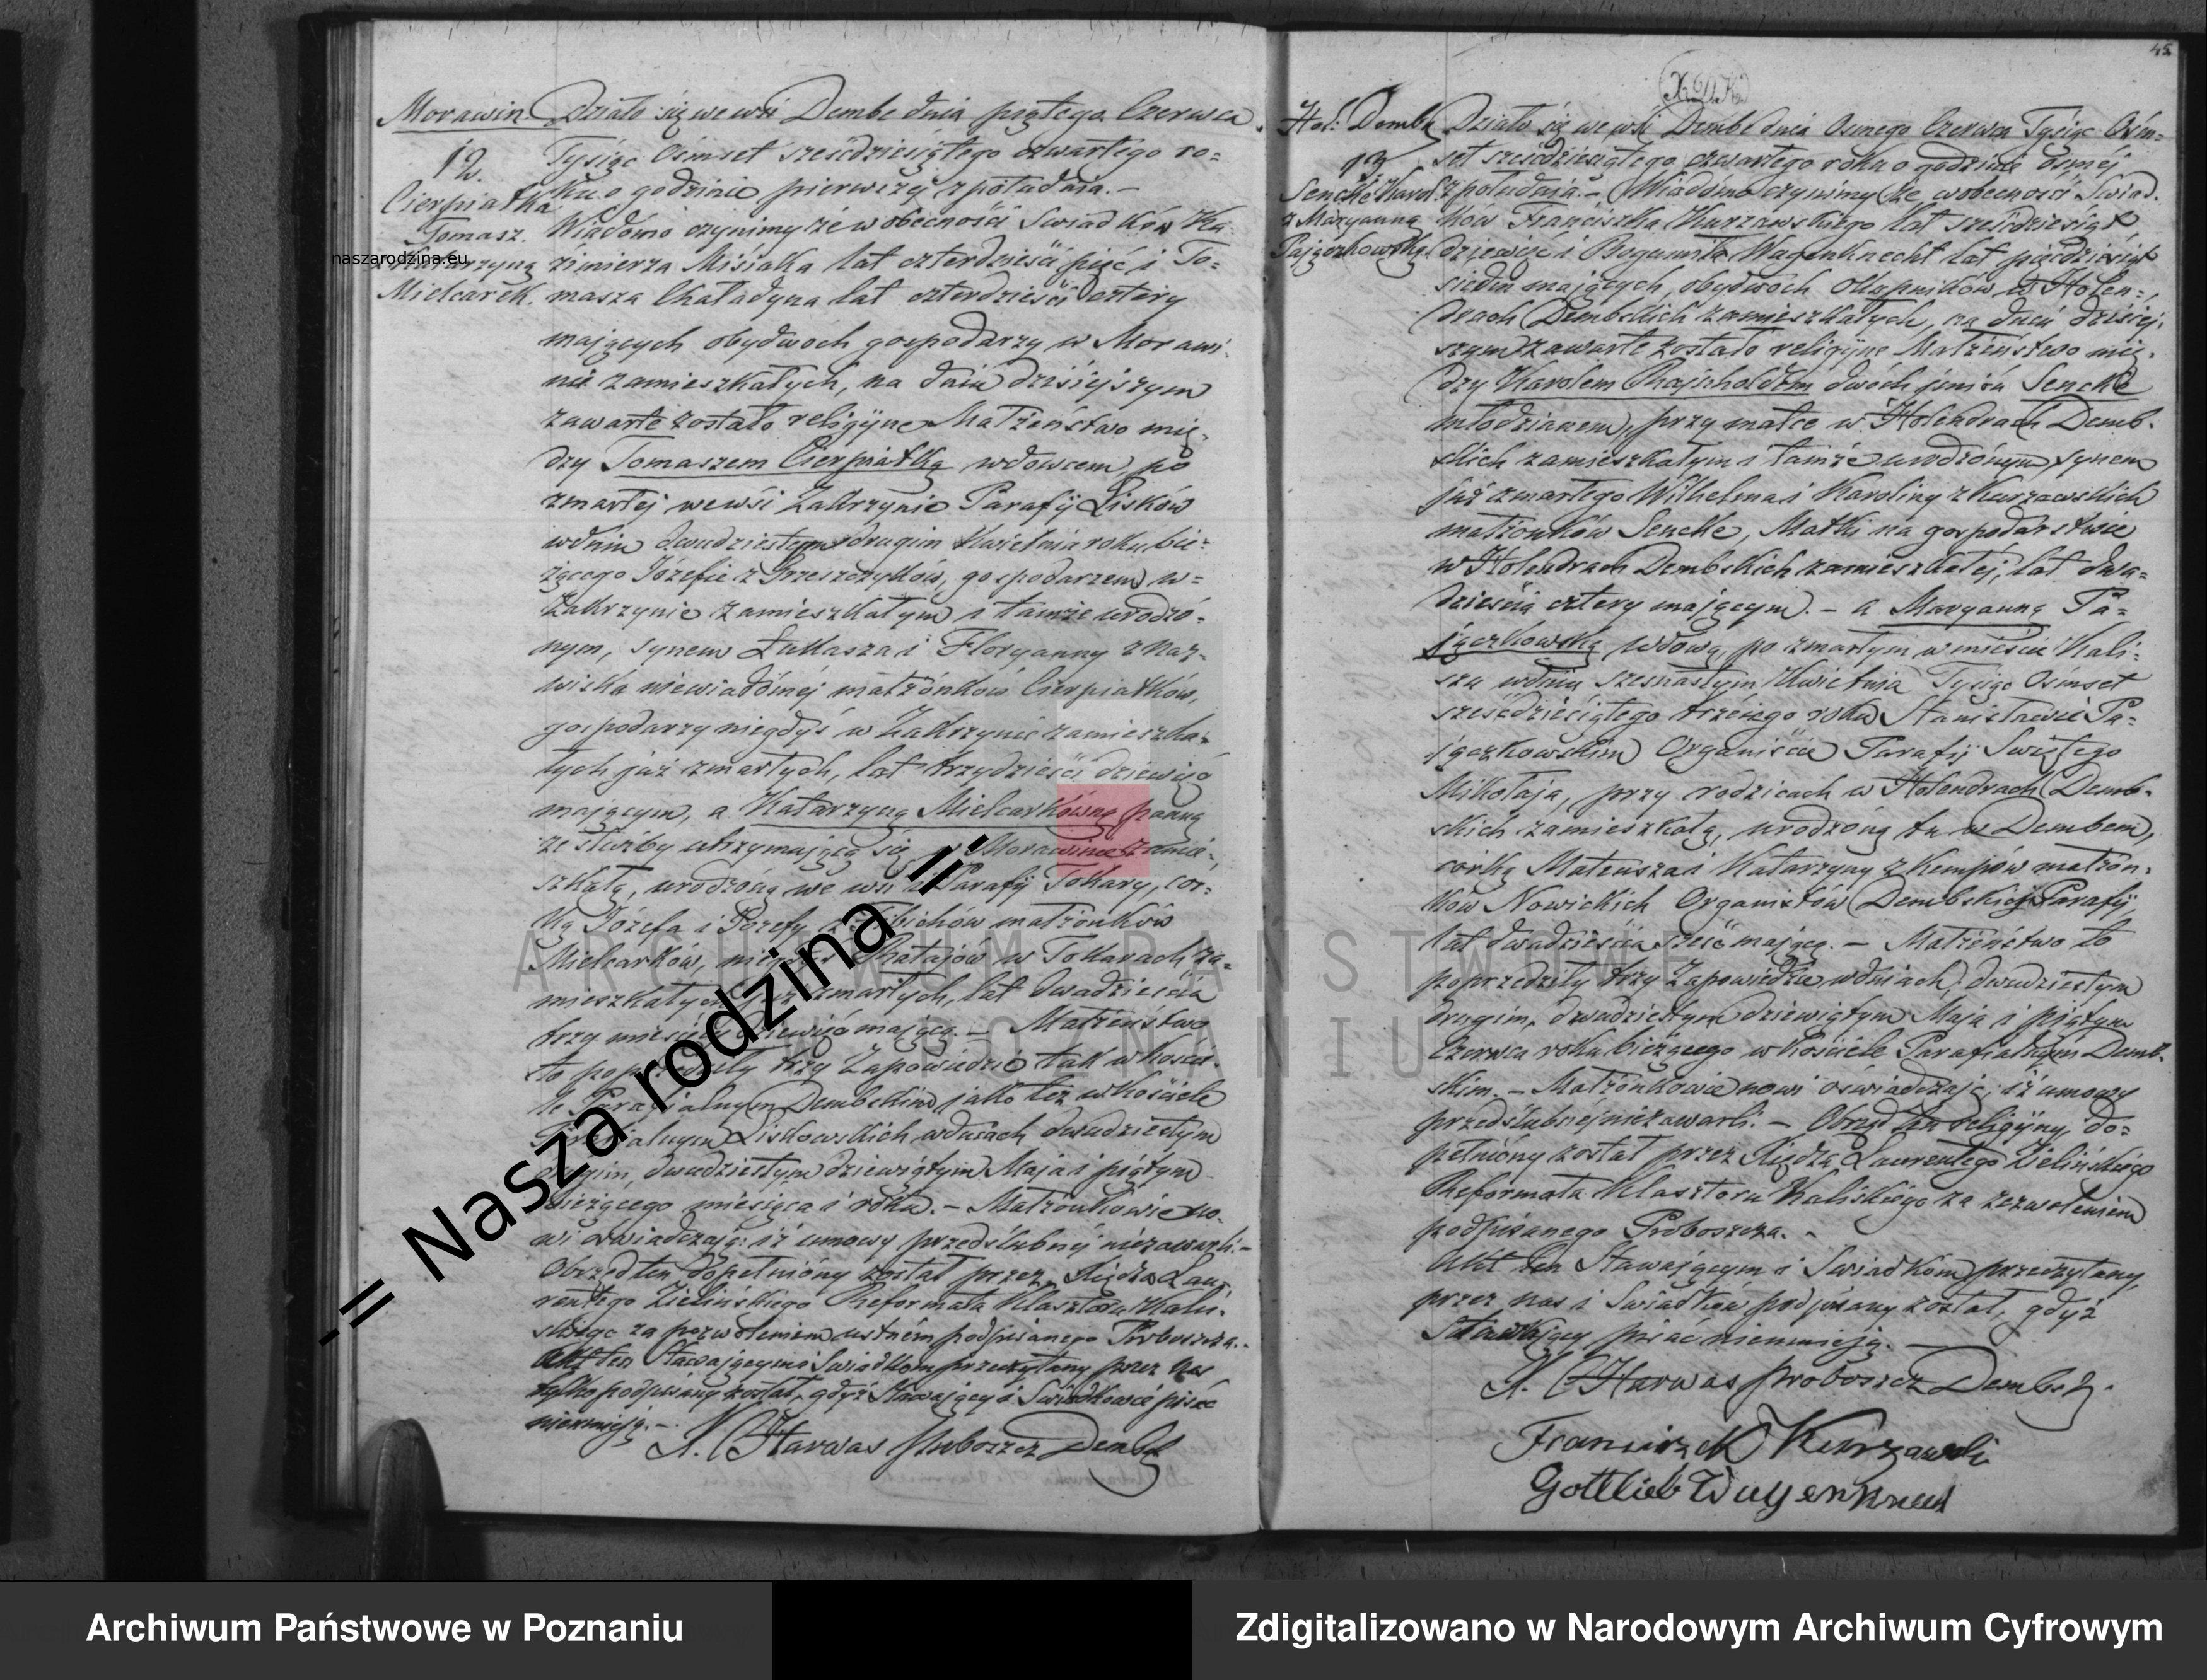 Morawin
12.
Cierpiatka
Tomasz.
z Katarzyną
Mielcarek.
naszarodzina.eu
Działo się we wsi Dembe dnia piątego Czerwca
Tysiąc Ośmset sześćdziesiątego czwartego ro=
ku o godzinie pierwszej z południa. –
Wiadomo czynimy że w obecności Świadków Ka=
zimierza Misiaka lat czterdzieści pięć i To=
masza Chaładyna lat czterdzieści cztery
mających obydwóch gospodarzy w Morawi-
nie zamieszkałych, na dniu dzisiejszym
zawarte zostało religijne Małżeństwo mię-
dzy Tomaszem Cierpiatką wdowcem, po
zmarłej we wsi Zakrzynie Parafij Lisków
w dniu dwudziestym drugim Kwietnia roku bie=
żącego Józefie z Grzeszczyków, gospodarzem w=
Zakrzynie zamieszkałym i tamże urodzo=
nym, synem Łukasza i Floryanny z naz=
wiska niewiadomej małżonków Cierpiatków,
gospodarzy niegdyś w Zakrzynie zamieszka=
łych już zmarłych, lat trzydzieści dziewięć
mającym, a Katarzyną Mielcarkówną panną
ze służby utrzymującą się, w Morawinie zamie=
szkałą, urodzoną we wsi i Parafij Tokary, cór=
ką Józefa i Józefy z małżonków
Mielcarków, niegdyś w Tokarach za=
mieszkałych już zmarłych, lat dwadzieścia
trzy miesięcy dziewięć mającą. – Małżeństwo
to poprzedziły trzy Zapowiedzie tak w Kości-
le Parafialnym Dembskim jako też w Kościele
Parafialnym Liskowskich w dniach dwudziestym
drugim, dwudziestym dziewiątym Maja i piątym
bieżącego miesiąca i roku. – Małżonkowie no-
wi oświadczają: iż umowy przedślubnej niezawarli. –
Obrzęd ten dopełniony został przez Xiędza Lau-
rentego Zielińskiego Reformata Klasztoru Kali-
skiego za pozwoleniem ustnem podpisanego Proboszcza. –
Akt ten Stawającym i Świadkom przeczytany przez nas
tylko podpisany został, gdyż Stawający i Świadkowie pisać
nieumieją. –
X. Harwas Proboszcz Dembsk
45
Hol: Demby
13
Sencke Karol
z Maryanną
Pajączkowską.
Działo się we wsi Dembe dnia Osmego Czerwca Tysiąc Ośm=
set sześćdziesiątego czwartego roku o godzinie ósmej
z południa. – Wiadomo czynimy że w obecności Świad-
ków Franciszka Kurzawskiego lat sześćdziesiąt
dziewięć i Bogumiła Wagenknecht lat pięćdziesiąt
siedm mających, obydwóch Okupników w Holen=
drach Dembskich zamieszkałych, na dniu dzisiej-
szym zawarte zostało religijne Małżeństwo mię-
dzy Karolem Rajnholdem dwóch imion Sencke
młodzianem, przy matce w Holendrach Demb-
skich zamieszkałym i tamże urodzonym, synem
już zmarłego Wilhelma i Karoliny z Kurzawskich
małżonków Sencke, Matki na gospodarstwie
w Holendrach Dembskich zamieszkałej, lat dwa=
dzieścia cztery mającym. – a Maryanną Pa=
jączkowską wdową, po zmarłym w mieście Kali=
szu w dniu szesnastym Kwietnia Tysiąc Ośmset
sześćdziesiątego trzeciego roku Stanisławie Pa=
jączkowskim Organiście Parafij Świętego
Mikołaja, przy rodzicach w Holendrach Demb-
skich zamieszkałą, urodzoną tu w Dembem,
córką Mateusza i Katarzyny z Kempów małżon-
ków Nowickich Organistów Dembskiej Parafij,
lat dwadzieścia sześć mającą. – Małżeństwo to
poprzedziły trzy Zapowiedzie w dniach, dwudziestym
drugim, dwudziestym dziewiątym Maja i piątym
Czerwca roku bieżącego w Kościele Parafialnym Demb-
skim. – Małżonkowie nowi oświadczają; iż umowy
przedślubnej niezawarli. – Obrzęd ten religijny do=
pełniony został przez Xiędza Laurentego Zielińskiego
Reformata Klasztoru Kaliskiego za zezwoleniem
podpisanego Proboszcza. –
Akt ten Stawającym i Świadkom przeczytany,
przez nas i Świadków podpisany został, gdyż
Stawający pisać nieumieją.
X. Harwas Proboszcz Dembsk
Franciszek Kurzawski
Gottlieb Wagenknecht
-= Nasza rodzina =-
ARCHIWUM PAŃSTWOWE
W POZNANIU
Archiwum Państwowe w Poznaniu
Zdigitalizowano w Narodowym Archiwum Cyfrowym